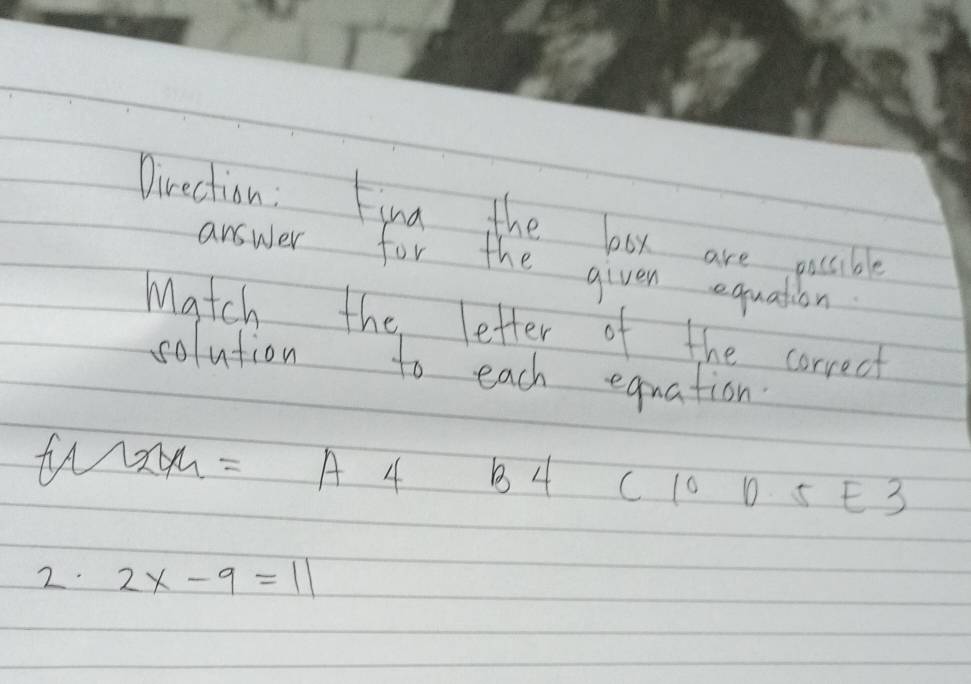 Direction: Find the box are possible
answer for the given equation.
Match the letter of the correct
solution to each equation.
= A 4 B 4 C 10 D. 5 E 3
2. 2x - 9 = 11